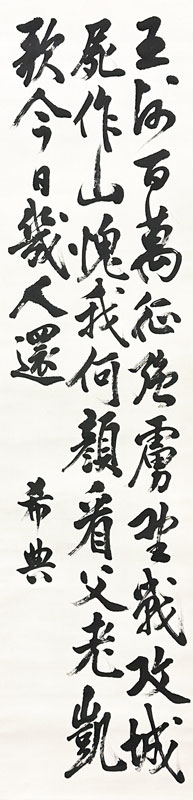 王師百萬征強虜野戰攻城
屍作山愧我何顔看父老凱
歌今日幾人還
希典